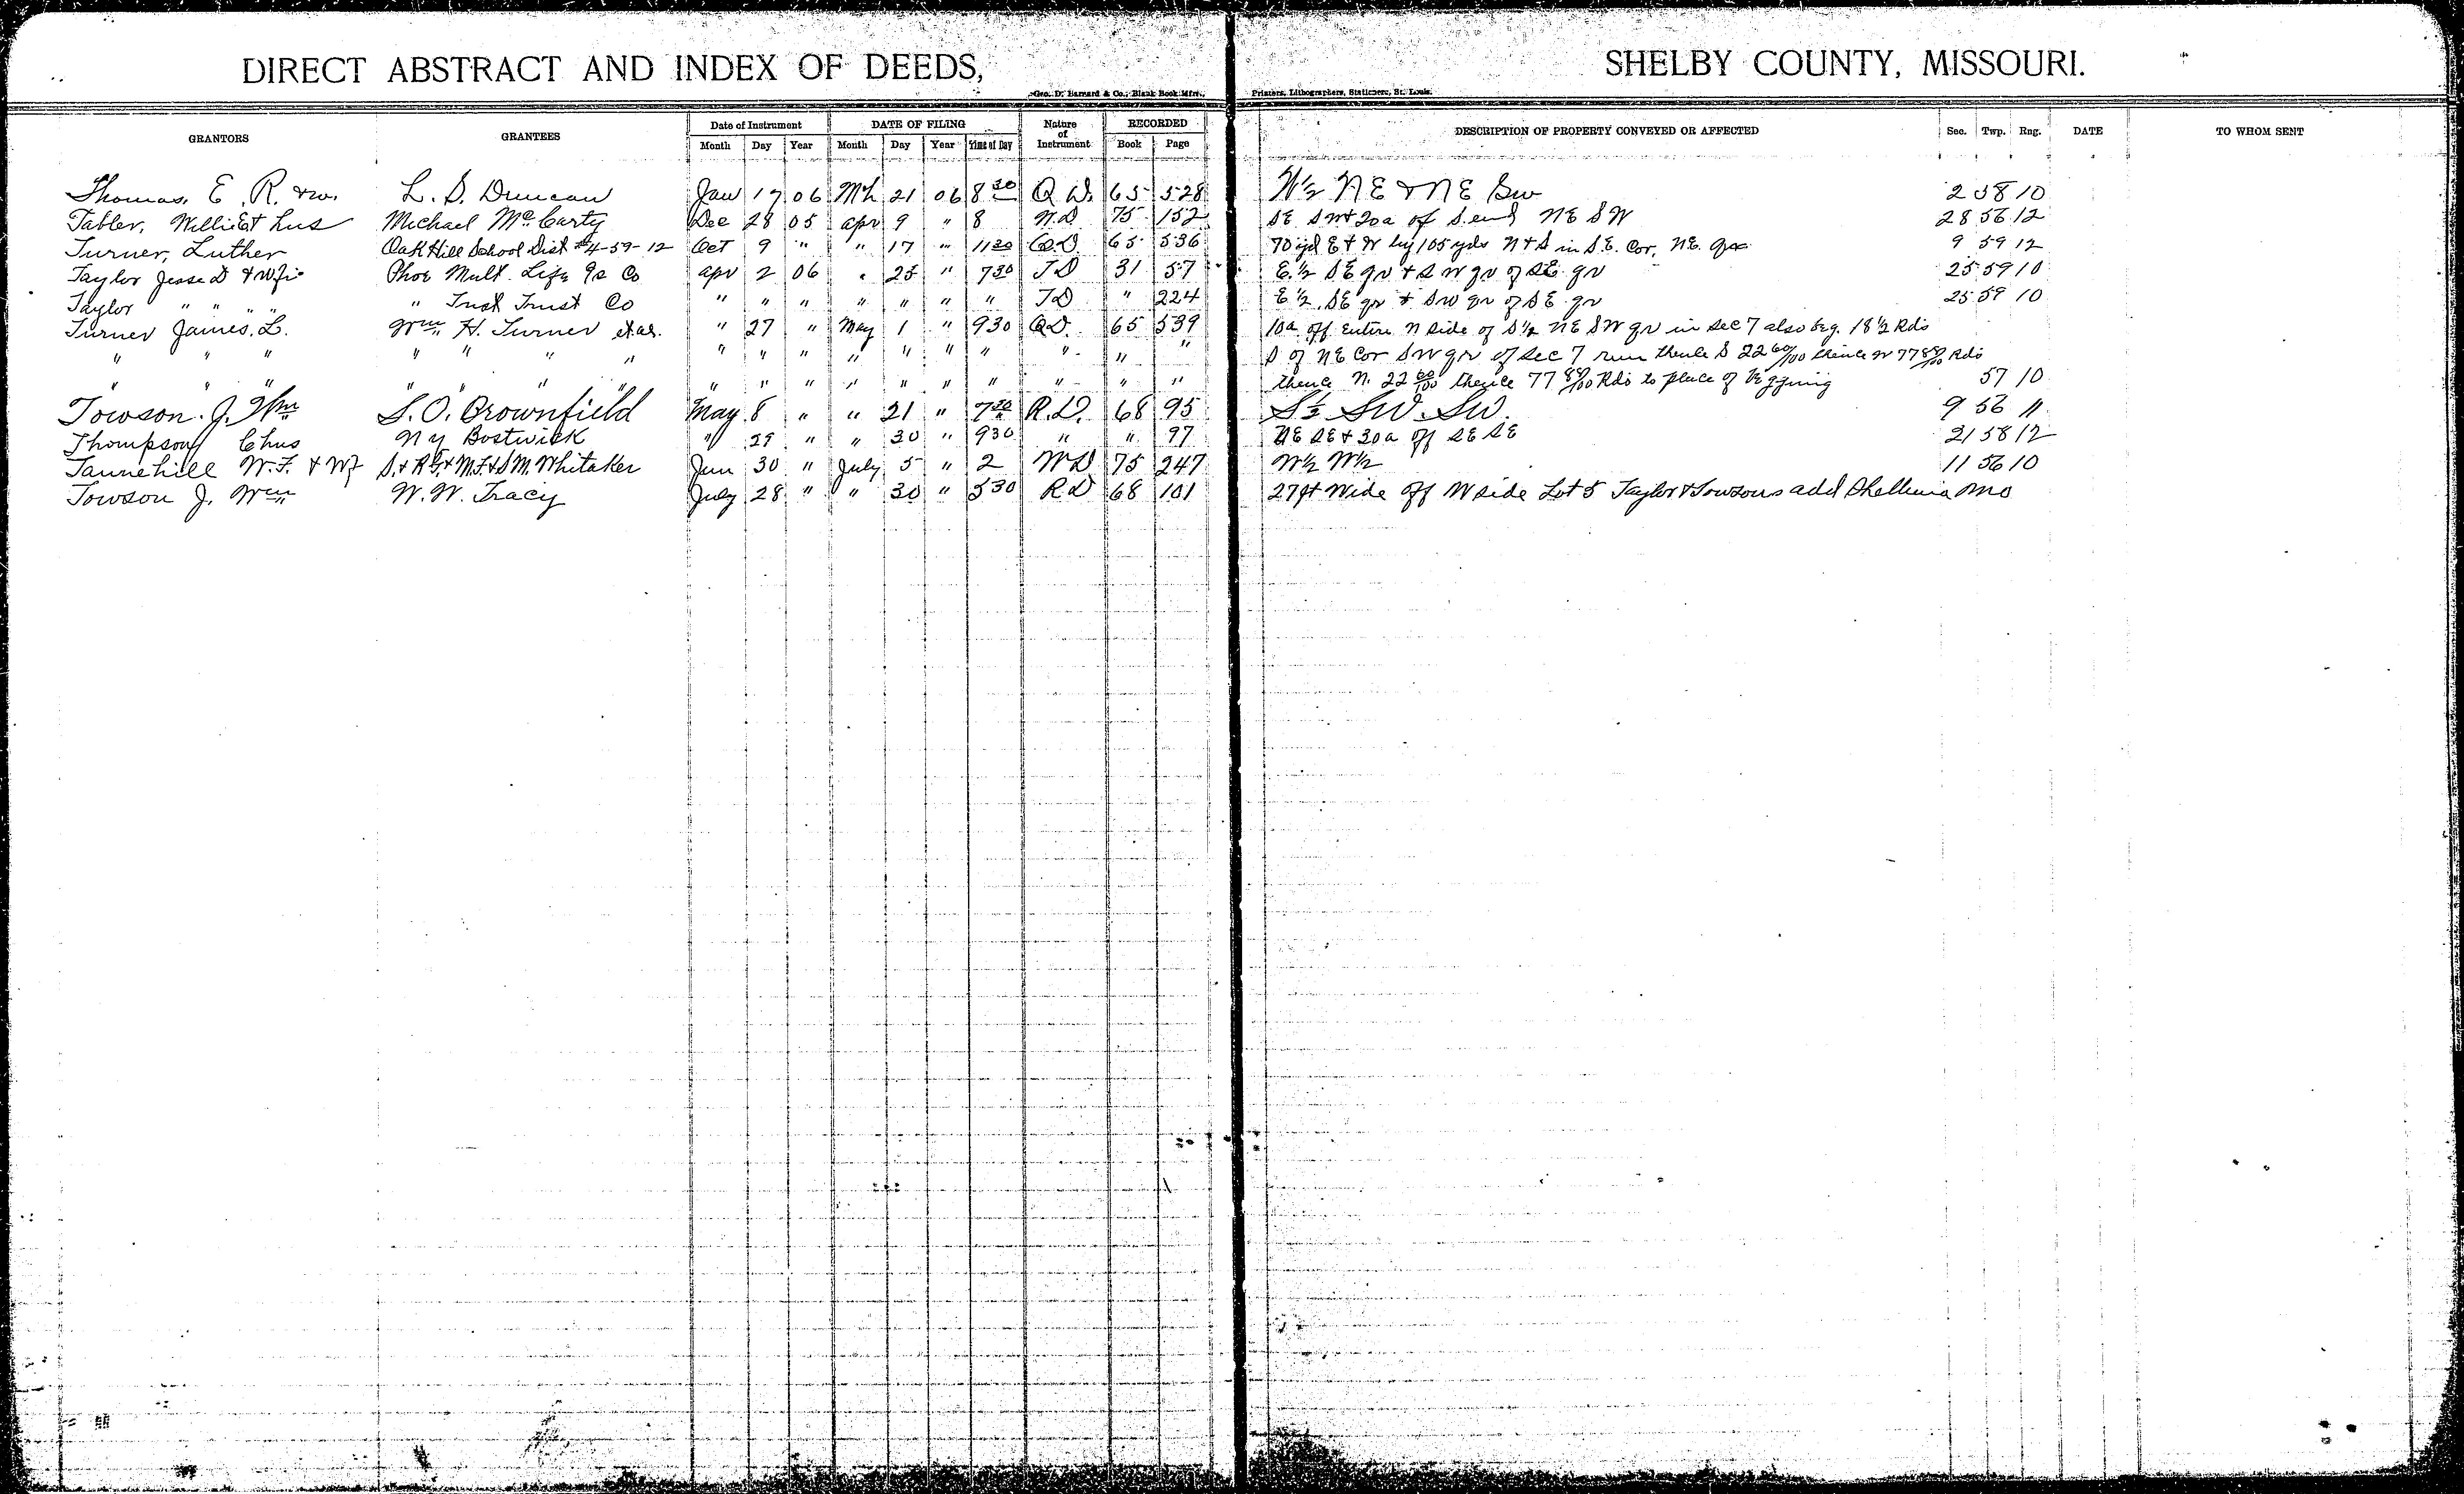 DIRECT ABSTRACT AND INDEX OF DEEDS, SHELBY COUNTY, MISSOURI.
Geo. D. Barnard & Co., Blank Book Mfrs., Printers, Lithographers, Stationers, St. Louis.
GRANTORS GRANTEES Date of Instrument DATE OF FILING Nature of Instrument RECORDED DESCRIPTION OF PROPERTY CONVEYED OR AFFECTED Sec. Twp. Rng. DATE TO WHOM SENT
Month Day Year Month Day Year Time of Day Book Page
Thomas, E. R. & w. L. S. Duncan Jan 17 06 Mh 21 06 8 30 Q D. 65 528 W½ NE & NE SW 2 58 10
Tabler, Willie E & hus Michael McCarty Dec 28 05 apr 9 " 8 W.D 75 152 SE SW & 20a of S. end NE SW 28 56 12
Turner, Luther Oak Hill School Dist #4-59-12 Oct 9 " " 17 " 11 20 Q.D 65 536 70 yd E & W by 105 yds N & S in S.E. Cor, NE. qr 9 59 12
Taylor Jesse D & Wife Phoe Mult. Life Co apr 2 06 " 25 " 7 30 TD 31 57 E.½ SE qr & SW qr of SE. qr 25 59 10
Taylor " " " " Trust Co " " " " " " " TD " 224 E ½ SE qr & SW qr of SE. qr 25 59 10
Turner James. L. Wm H. Turner et al. " 27 " May 1 " 9 30 QD. 65 539 10a off entire N side of S½ NE SW qr in Sec 7 also beg. 18½ Rds
" " " " " " " " " " " " " " " " " S of NE Cor SW qr of Sec 7 run thence S 22 60/100 thence W 77 88/100 Rds
" " " " " " " " " " " " " " " " " thence N. 22 60/100 thence 77 88/100 Rds to place of Beggining 57 10
Towson. J. Wm S. O. Brownfield May 8 " " 21 " 7 30 R.D. 68 95 S½ SW. SW. 9 56 11
Thompson Chas N Y Bostwick " 29 " " 30 " 9 30 " " 97 NE SE & 30a off SE SE 21 58 12
Tannehill W. F. & Wf S. & R. F. & M. F. & S. M. Whitaker Jun 30 " July 5 " 2 WD 75 247 W½ W½ 11 56 10
Towson J. Wm W. W. Tracy July 28 " " 30 " 5 30 RD 68 101 27 ft Wide off W side Lot 5 Taylor & Towsons add Shelbina Mo